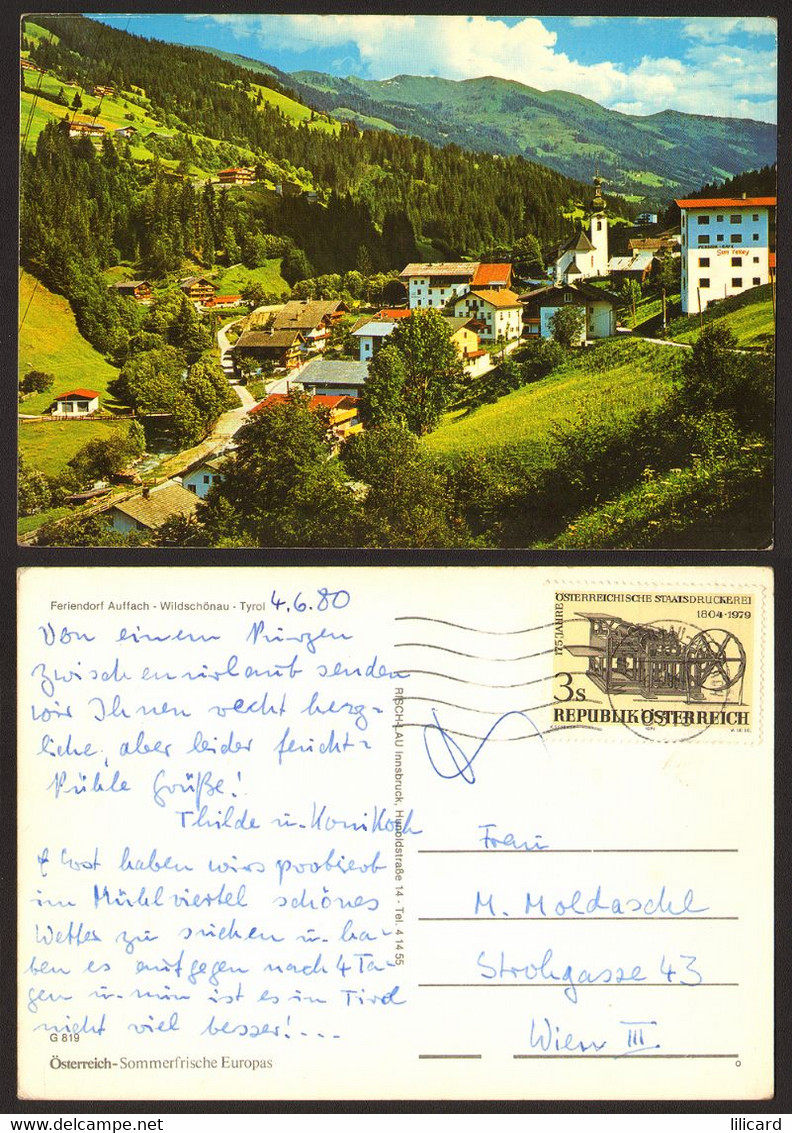 Feriendorf Auffach - Wildschönau - Tyrol
4.6.80
Von einem kurzen
zwischenurlaub senden
wir Ihnen recht herz-
liche, aber leider feucht-
kühle Grüße!
Thilde u.
haben wirs probiert
im Mühlviertel schönes
Wetter zu suchen u. ha-
ben es aufgegen nach 4 Ta-
gen u. nun ist es in Tirol
nicht viel besser!...
G 819
Österreich-Sommerfrische Europas
RISCH-LAU Innsbruck, Humboldstraße 14 - Tel. 4 14 55
175 JAHRE ÖSTERREICHISCHE STAATSDRUCKEREI
1804-1979
3s
REPUBLIK ÖSTERREICH
Frau
M. Moldaschl
Strohgasse 43
Wien III
lilicard